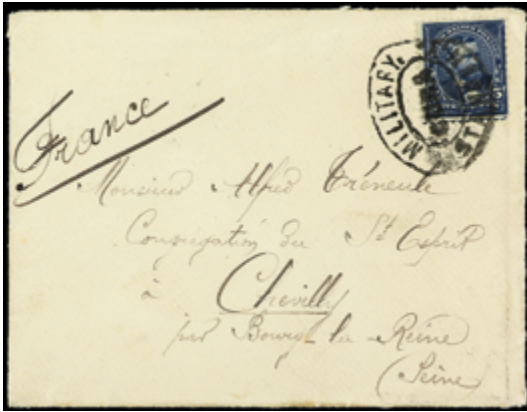 MILITARY. STA
5
France
Monsieur Alfred
Congrégation du St Esprit
à
Chevilly
par Bourg-la-Reine
(Seine)